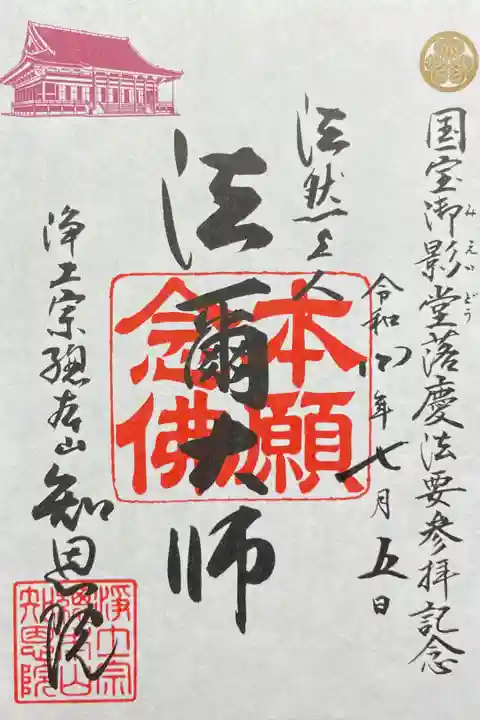 国宝御影堂落慶法要参拝記念
みえいどう
令和四年七月五日
法然上人
法爾大師
本願
念佛
浄土宗總本山 知恩院
浄土宗
總本山
知恩院